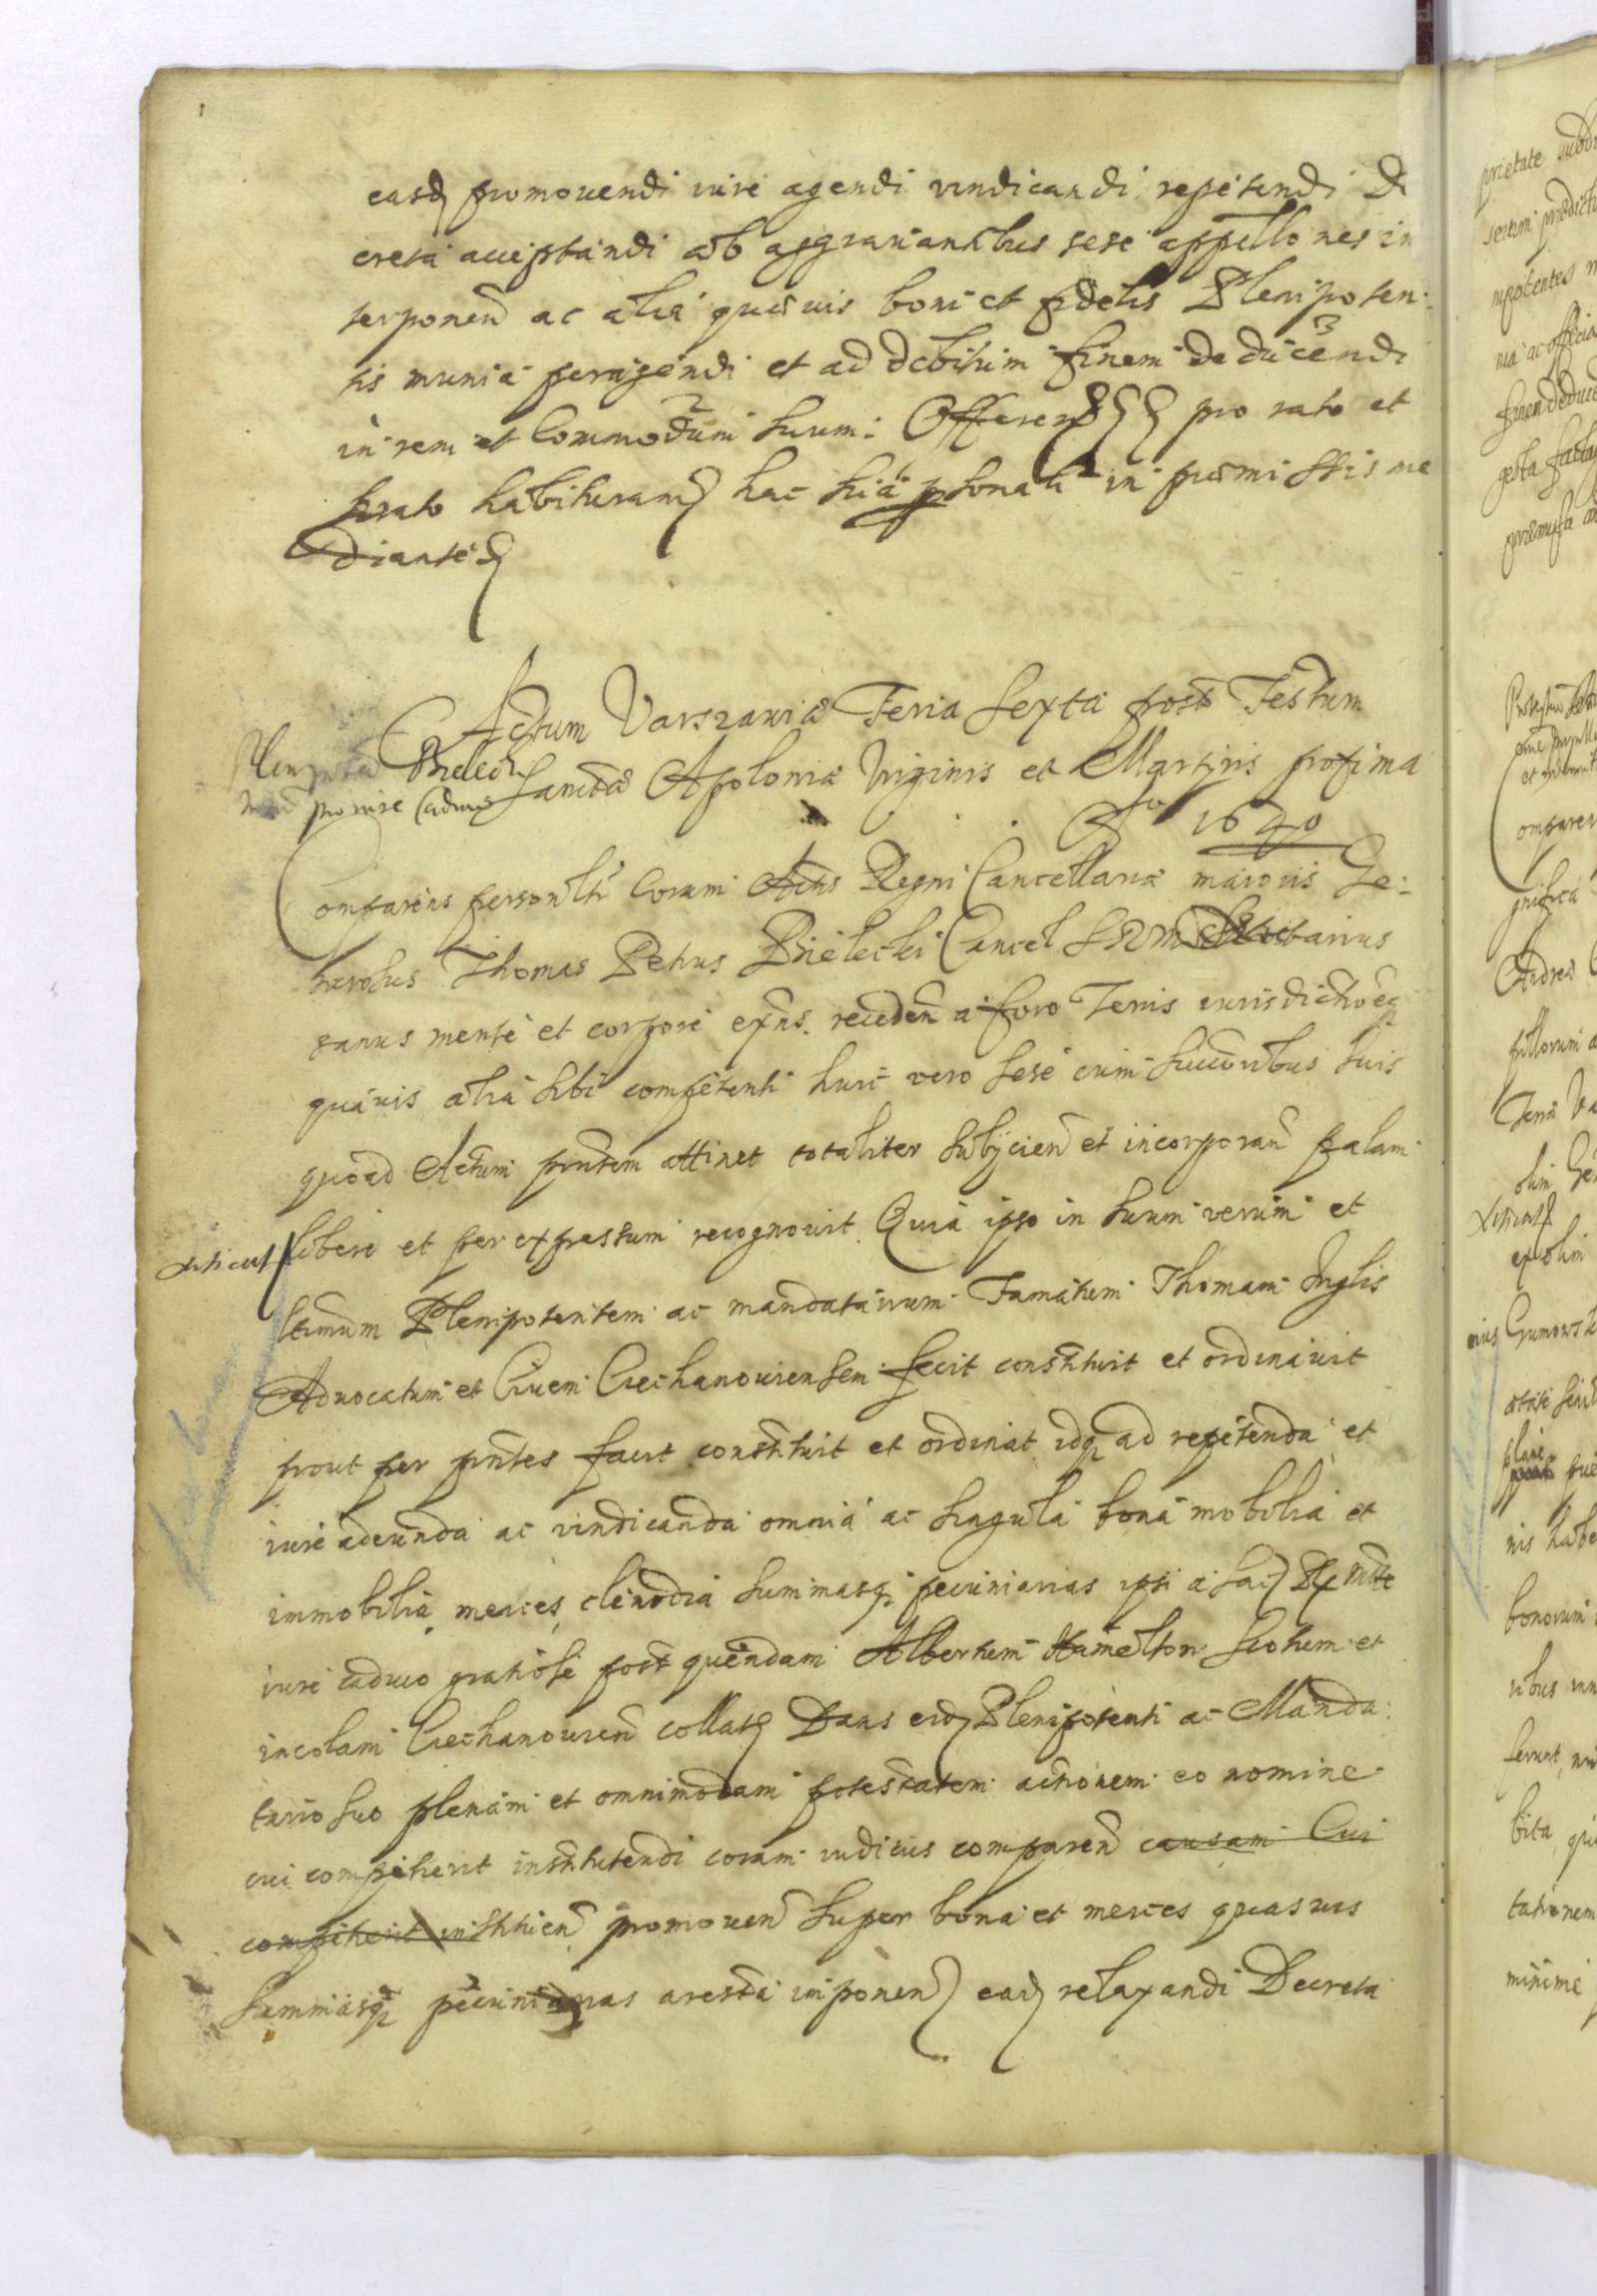 easq promovendi iure agendi vindicandi repetendi De
creta acceptandi ab aggravantibus sese appellõnes in
terponeñ ac alia quævis boni et fidelis Plenipoten:
tis munia peragendi et ad debitum finem deducendi
in rem et Commodum suum. Offerens pro rato et
grato habituram hac sua in præmissis me
diante
Actum Varszaviæ Feria Sexta post Festum
Sanctæ Apoloniæ Virginis et Martyris proxima
Ao 1640
Bielecki
pro iure caduco
Comparens personltr Coram Actis Regni Cancellariæ maioris Ge:
nerosus Thomas Petrus Bielecki Cancel SRM Notarius
sanus mente et corpore exñs. recedeñ a foro Terris iurisdictioneq
quavis alia sibi competenti huic vero sese cum succoribus suis
quoad Actum pñtem attinet totaliter subijcieñ et incorporañ palam
libere et per expressum recognovit. Quia ipso in suum verum et
ltimum Plenipotentem ac mandatarium Famatum Thomam Inglis
Advocatum et Civem Ciechanoviensem fecit constituit et ordinavit
prout per pñtes facit constituit et ordinat idq ad repetenda et
iure adeunda ac vindicanda omnia ac singula bona mobilia et
immobilia merces clenodia summasq pecuniarias ipsi a Sac R Mtte
iure caduco gratiose post quendam Albertum Hamelton Scotum et
incolam Ciechanovieñ collatas Dans eidem Plenipotenti ac Manda:
tario suo plenam et omnimodam potestatem actionem eo nomine
cui competierit instituendi coram iudiciis compareñ causam Cui
competierit instituieñ promoveñ super bona et merces quasvis
summasq pecuniarias aresta imponeñ ead relaxandi Decreta